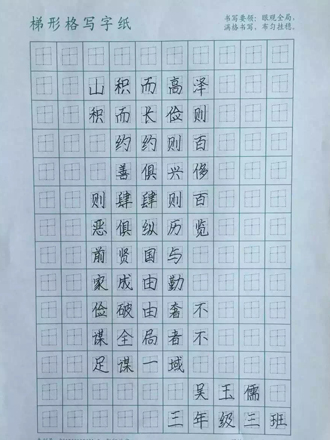 梯形格写字纸
书写要领：眼观全局，
满格书写，布匀挂稳。
山积而高泽
积而长俭则
约约则百
善俱兴侈
则肆肆则百
恶俱纵历览
前贤国与
家成由勤
俭破由奢不
谋全局者不
足谋一域
吴玉儒
三年级三班